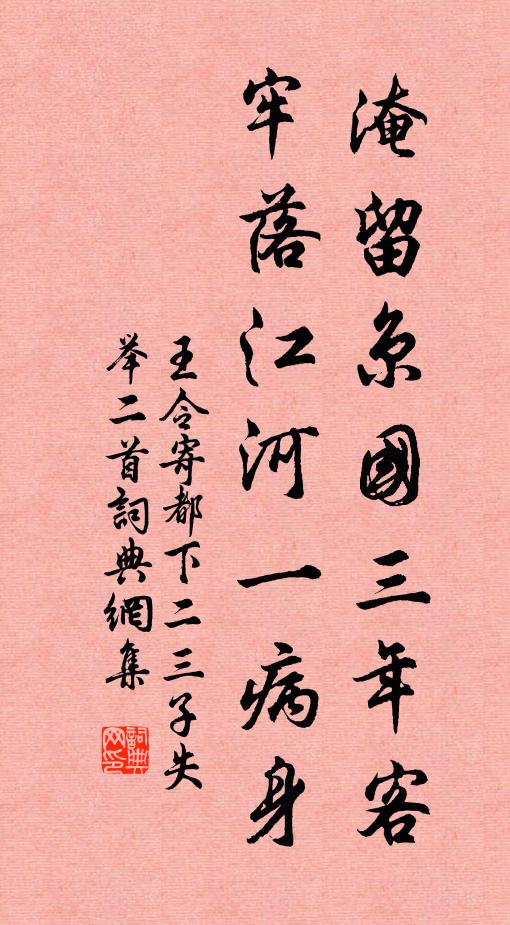 淹留京國三年客
牢落江河一病身
王令寄都下二三子失
举二首詞典網集
詞典網印